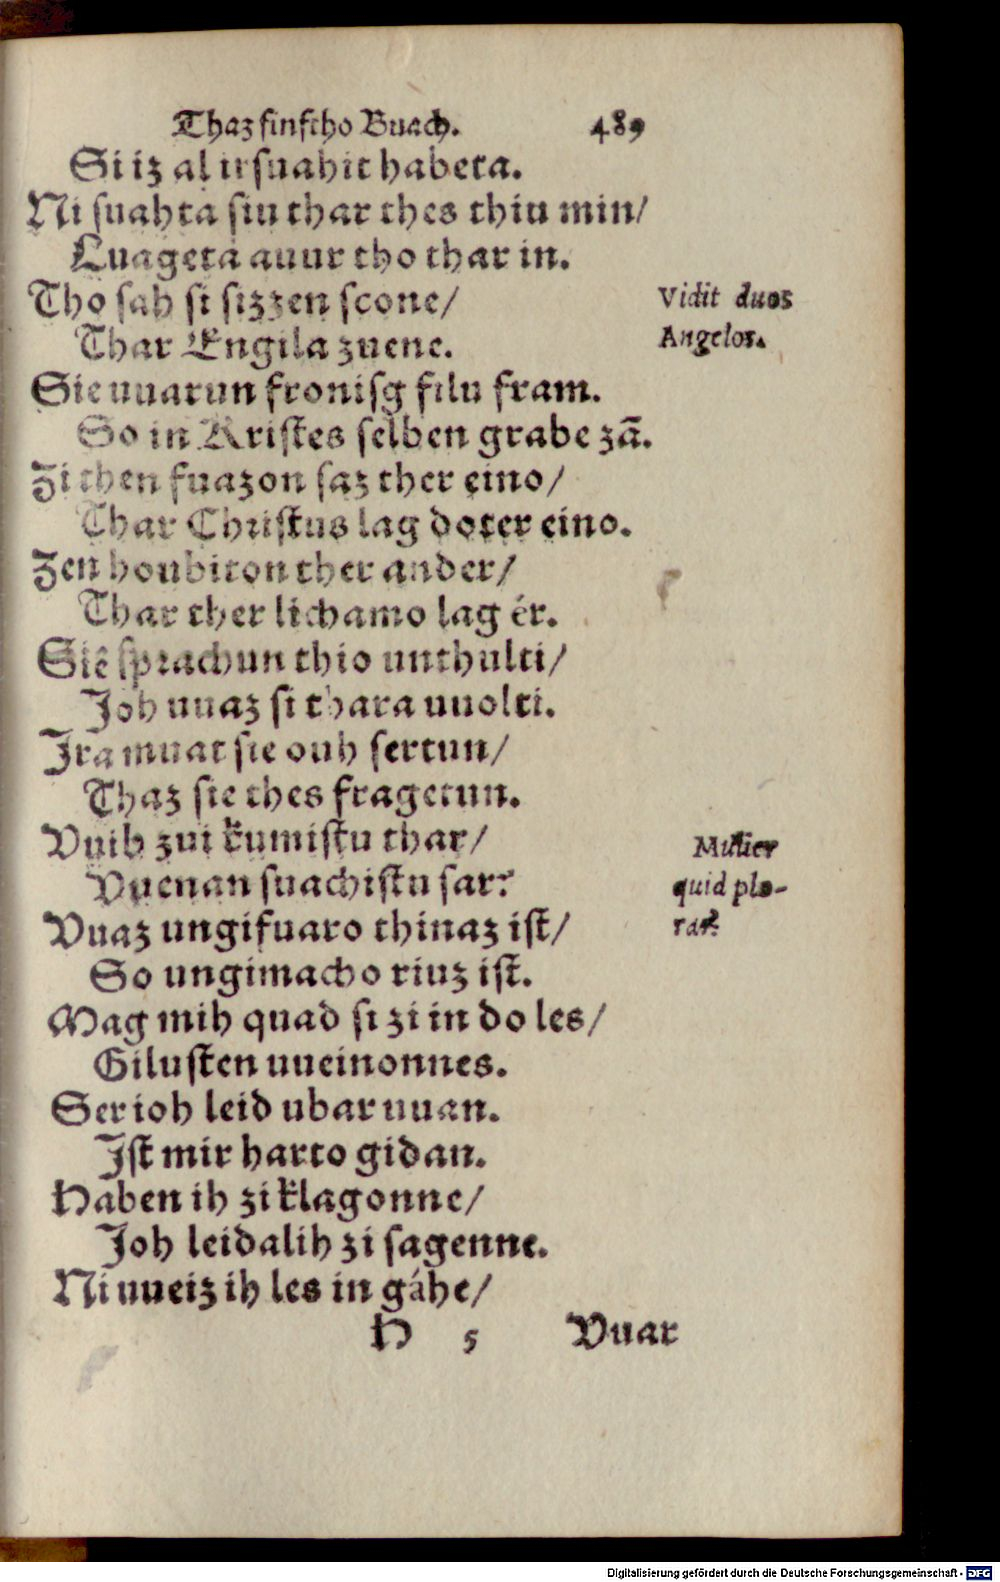 Thaz finftho Buach. 489
Si iz al irsuahit habeta.
Ni suahta siu thar thes thiu min/
Luageta auur tho thar in.
Tho sah si sizzen scone/
Vidit duos
Thar Engila zuene.
Angelos.
Sie uuarun fronisg filu fram.
So in Kristes selben grabe zã.
Zi then fuazon saz ther eino/
Thar Christus lag doter eino.
Zen houbiton ther ander/
Thar ther lichamo lag ér.
Sie sprachun thio unthulti/
Joh uuaz si thara uuolti.
Jra muat sie ouh sertun/
Thaz sie thes fragetun.
Vuib zui kumistu thar/
Mulier
Vuenan suachistu sar?
quid plo-
Vuaz ungifuaro thinaz ist/
ras?
So ungimacho riuz ist.
Mag mih quad si zi in do les/
Gilusten uueinonnes.
Ser ioh leid ubar uuan.
Jst mir harto gidan.
Haben ih zi klagonne/
Joh leidalih zi sagenne.
Ni uueiz ih les in gáhe/
H 5 Vuar
Digitalisierung gefördert durch die Deutsche Forschungsgemeinschaft - DFG